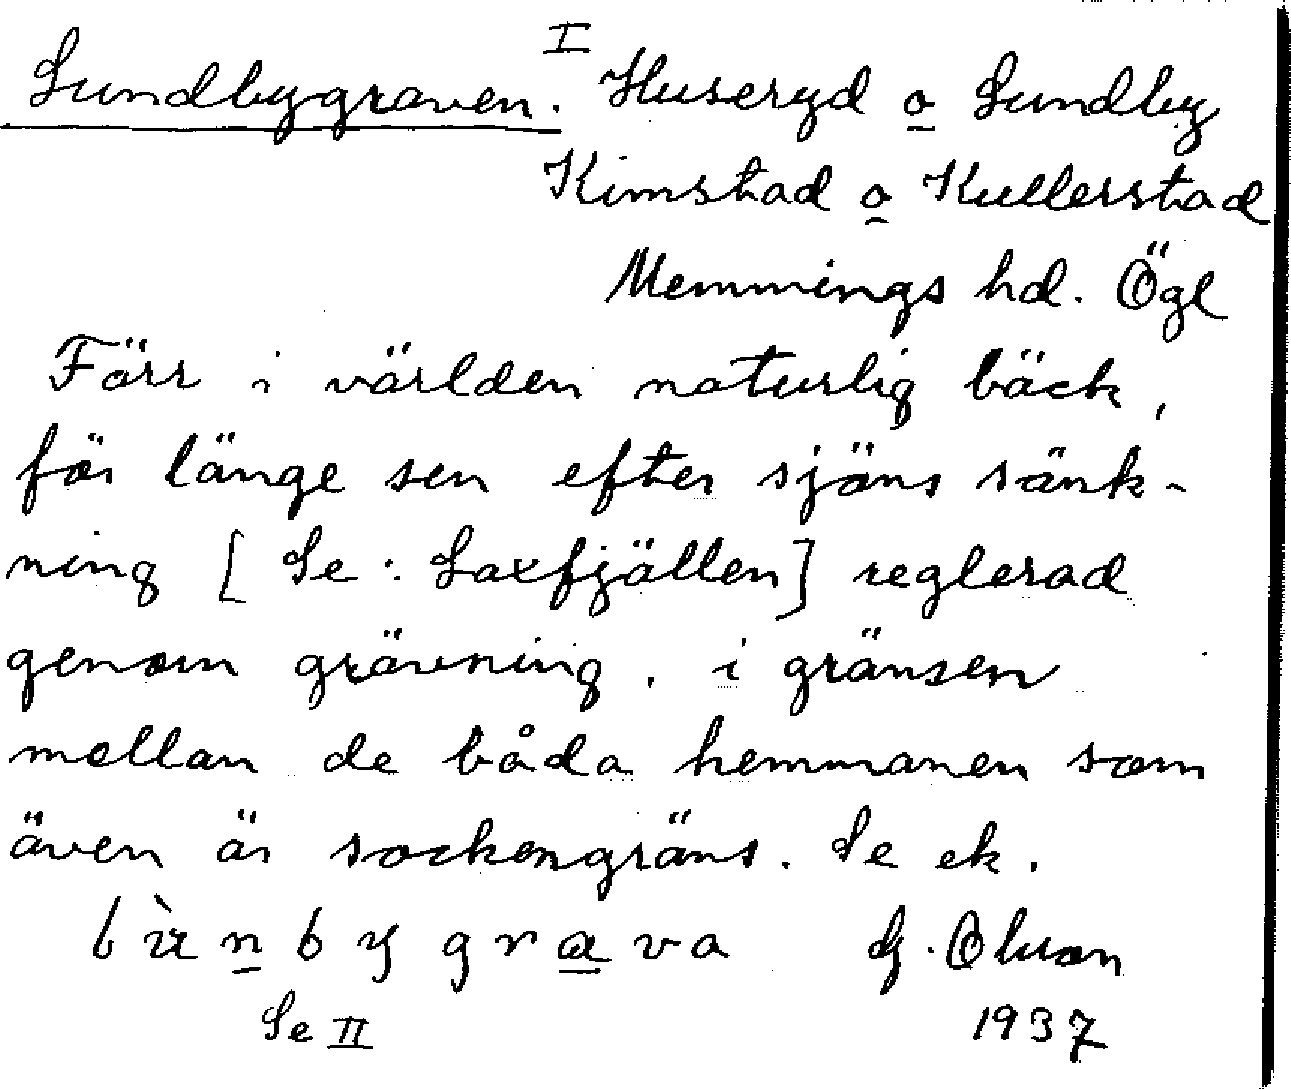 Lundbygraven. I Huseryd o Lundby
Kimstad o Kullerstad
Memmings hd. Ögl
Förr i världen naturlig bäck,
för länge sen efter sjöns sänk-
ning [Se: Laxfjällen] reglerad
genom grävning, i gränsen
mellan de båda hemmanen som
även är sockengräns. Se ek.
by grava G.
Se II 1937